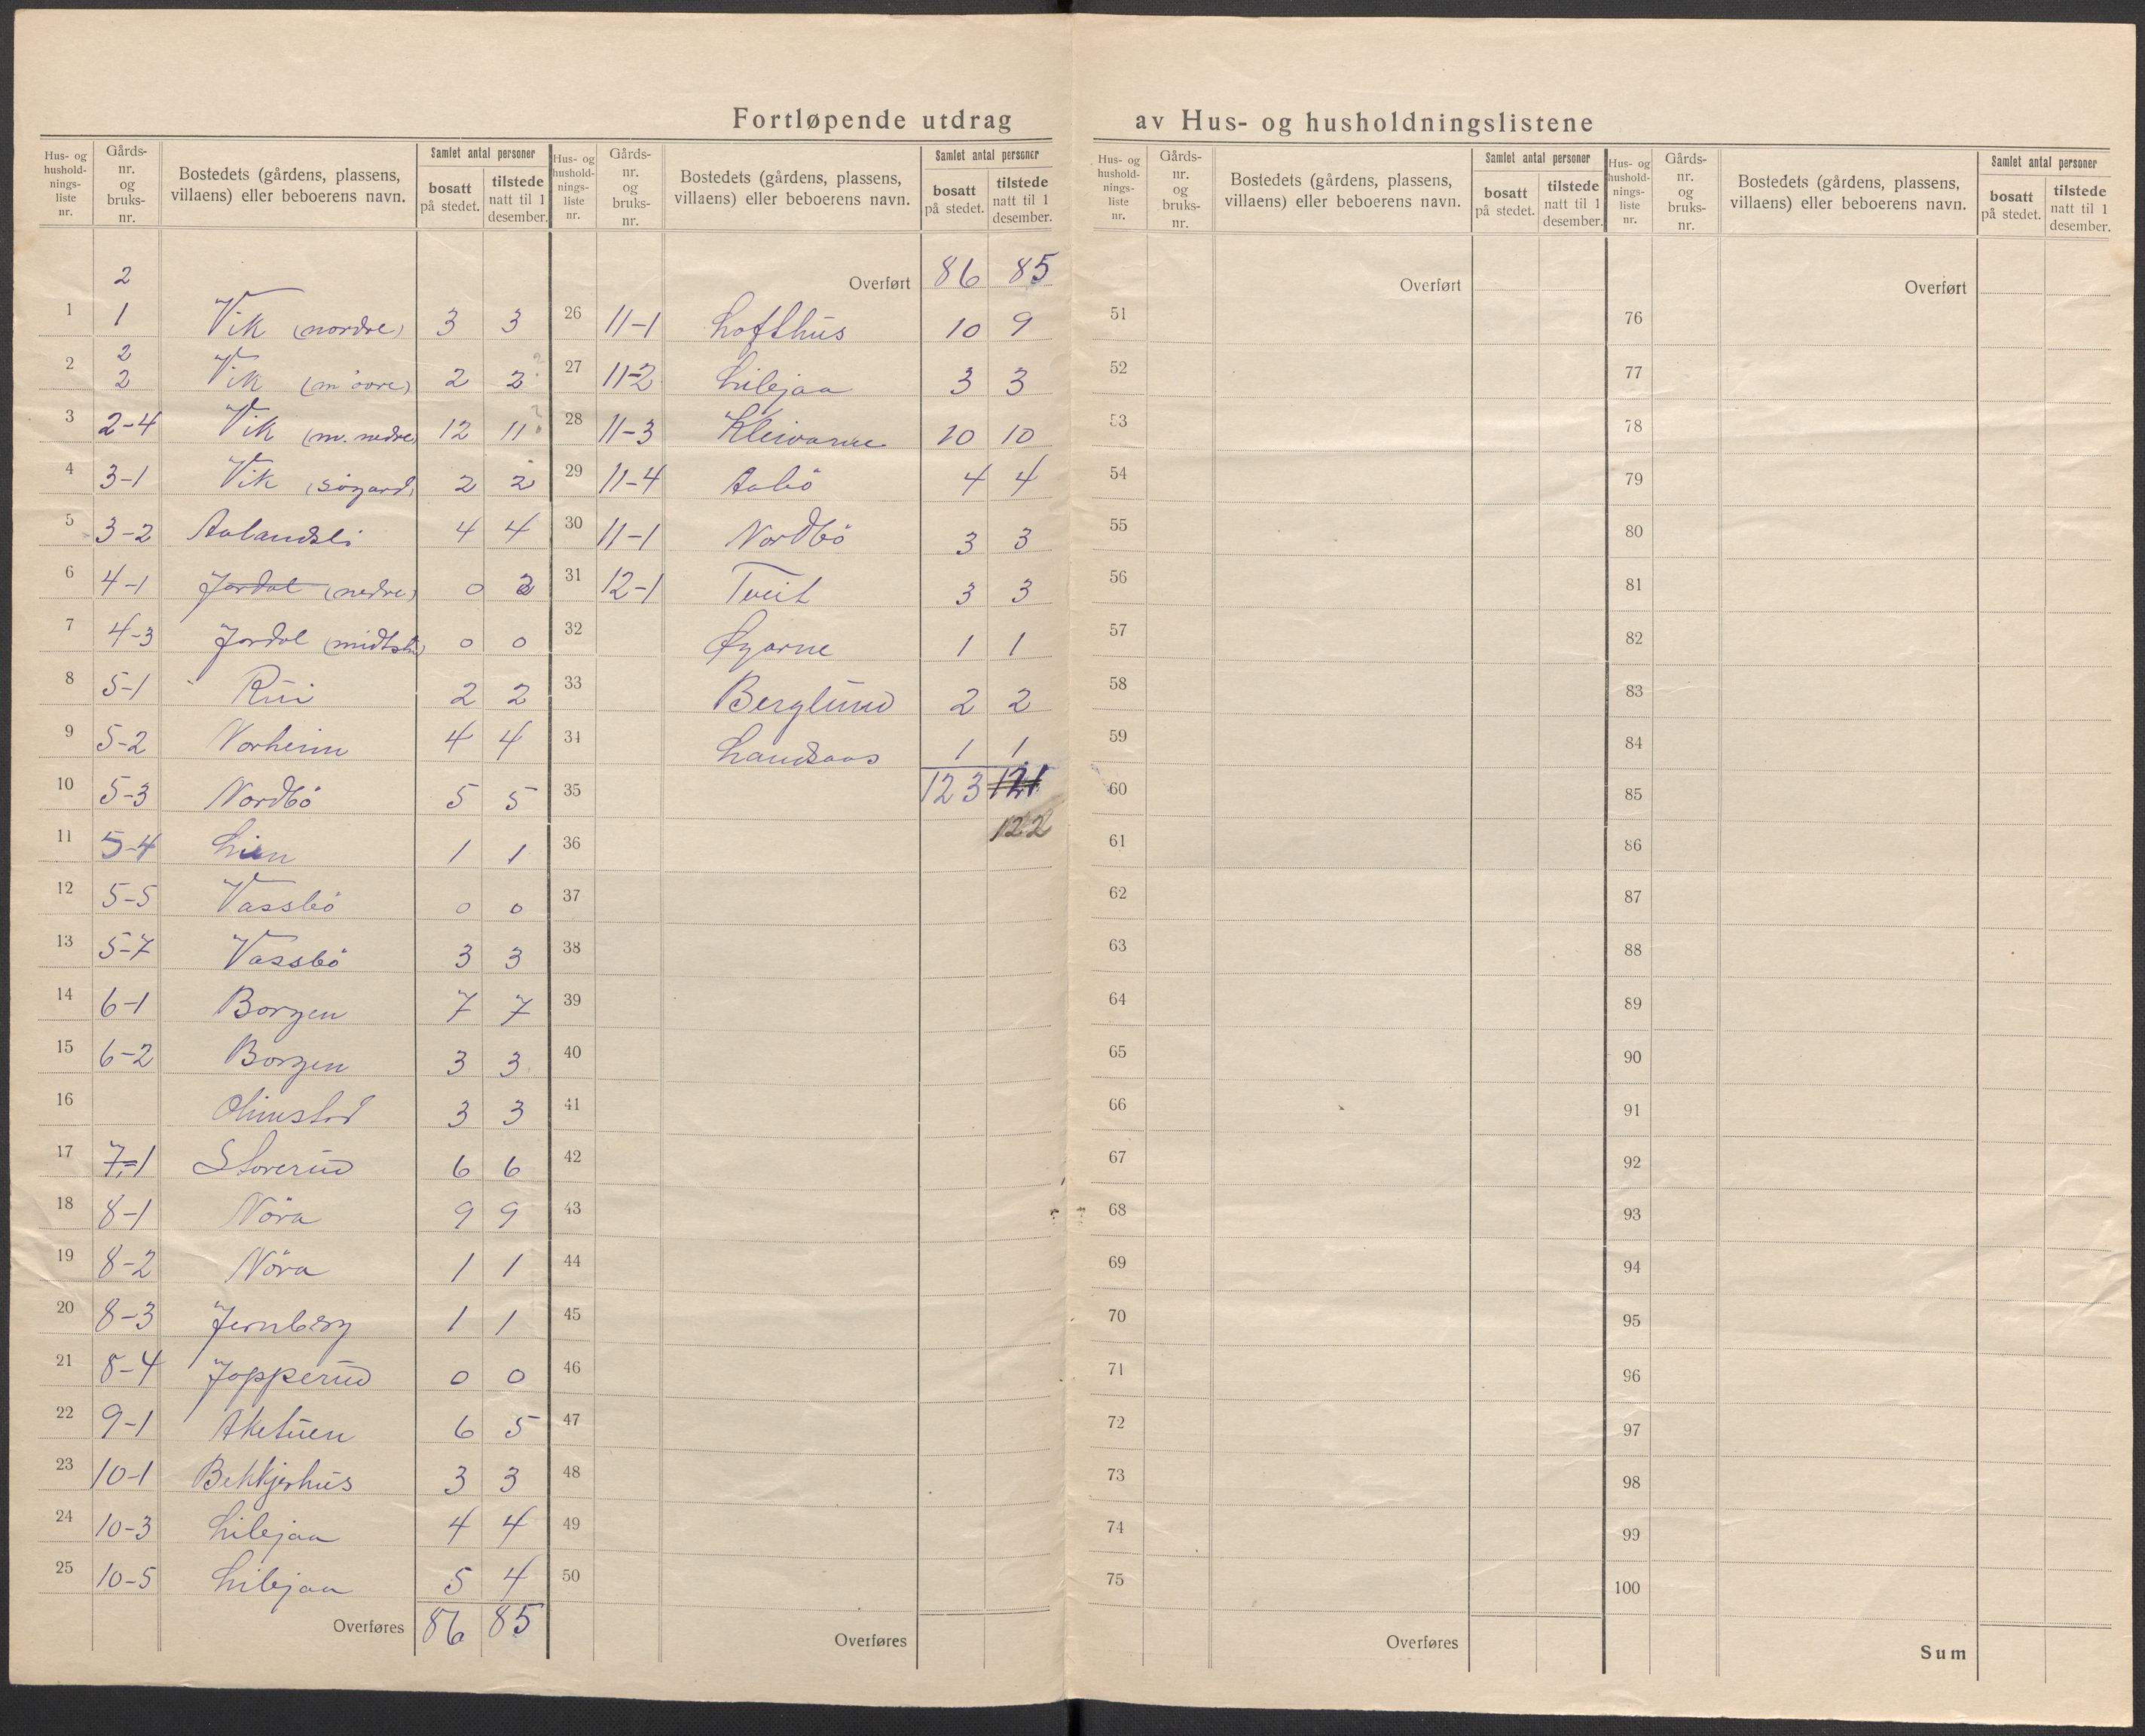 Fortløpende utdrag av Hus- og husholdningslistene
Hus- og hushold-nings-liste nr. Gårds-nr. og bruks-nr. Bostedets (gårdens, plassens, villaens) eller beboerens navn. Samlet antal personer bosatt på stedet. tilstede natt til 1 desember.
1 2 1 Vik (nordre) 3 3
2 2 2 Vik (m øvre) 2 2
3 2-4 Vik (m. nedre) 12 11
4 3-1 Vik (søgard) 2 2
5 3-2 Aalandsli 4 4
6 4-1 Jordal (nedre) 0 2
7 4-3 Jordal (midtstu) 0 0
8 5-1 Rui 2 2
9 5-2 Norheim 4 4
10 5-3 Nordbö 5 5
11 5-4 Lien 1 1
12 5-5 Vassbö 0 0
13 5-7 Vassbö 3 3
14 6-1 Borgen 7 7
15 6-2 Borgen 3 3
16 Olimstad 3 3
17 7-1 Storerud 6 6
18 8-1 Nöra 9 9
19 8-2 Nöra 1 1
20 8-3 Jernberg 1 1
21 8-4 Jopperud 0 0
22 9-1 Aketuen 6 5
23 10-1 Bekkjerhus 3 3
24 10-3 Libejaa 4 4
25 10-5 Libejaa 5 4
Overføres 86 85
Hus- og hushold-nings-liste nr. Gårds-nr. og bruks-nr. Bostedets (gårdens, plassens, villaens) eller beboerens navn. Samlet antal personer bosatt på stedet. tilstede natt til 1 desember.
Overført 86 85
26 11-1 Lofthus 10 9
27 11-2 Libejaa 3 3
28 11-3 Kleivarne 10 10
29 11-4 Aabö 4 4
30 11-1 Nordbö 3 3
31 12-1 Tveit 3 3
32 Øygarne 1 1
33 Berglund 2 2
34 Landsaas 1 1
35 123 121
36 122
37
38
39
40
41
42
43
44
45
46
47
48
49
50
Overføres
Hus- og hushold-nings-liste nr. Gårds-nr. og bruks-nr. Bostedets (gårdens, plassens, villaens) eller beboerens navn. Samlet antal personer bosatt på stedet. tilstede natt til 1 desember.
Overført
51
52
53
54
55
56
57
58
59
60
61
62
63
64
65
66
67
68
69
70
71
72
73
74
75
Overføres
Hus- og hushold-nings-liste nr. Gårds-nr. og bruks-nr. Bostedets (gårdens, plassens, villaens) eller beboerens navn. Samlet antal personer bosatt på stedet. tilstede natt til 1 desember.
Overført
76
77
78
79
80
81
82
83
84
85
86
87
88
89
90
91
92
93
94
95
96
97
98
99
100
Sum